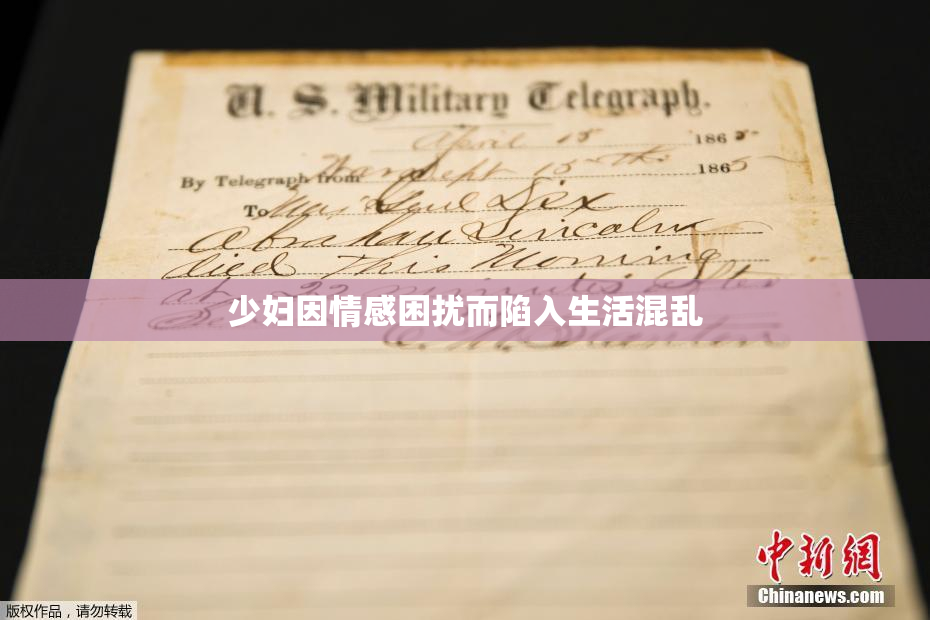 U. S. Military Telegraph.
April 15 1865
By Telegraph from War Dept 15th 1865
To Maj Genl Dix
Abraham Lincoln
died This Morning
at 22 minutes after
少妇因情感困扰而陷入生活混乱
中新网
Chinanews.com
版权作品，请勿转载